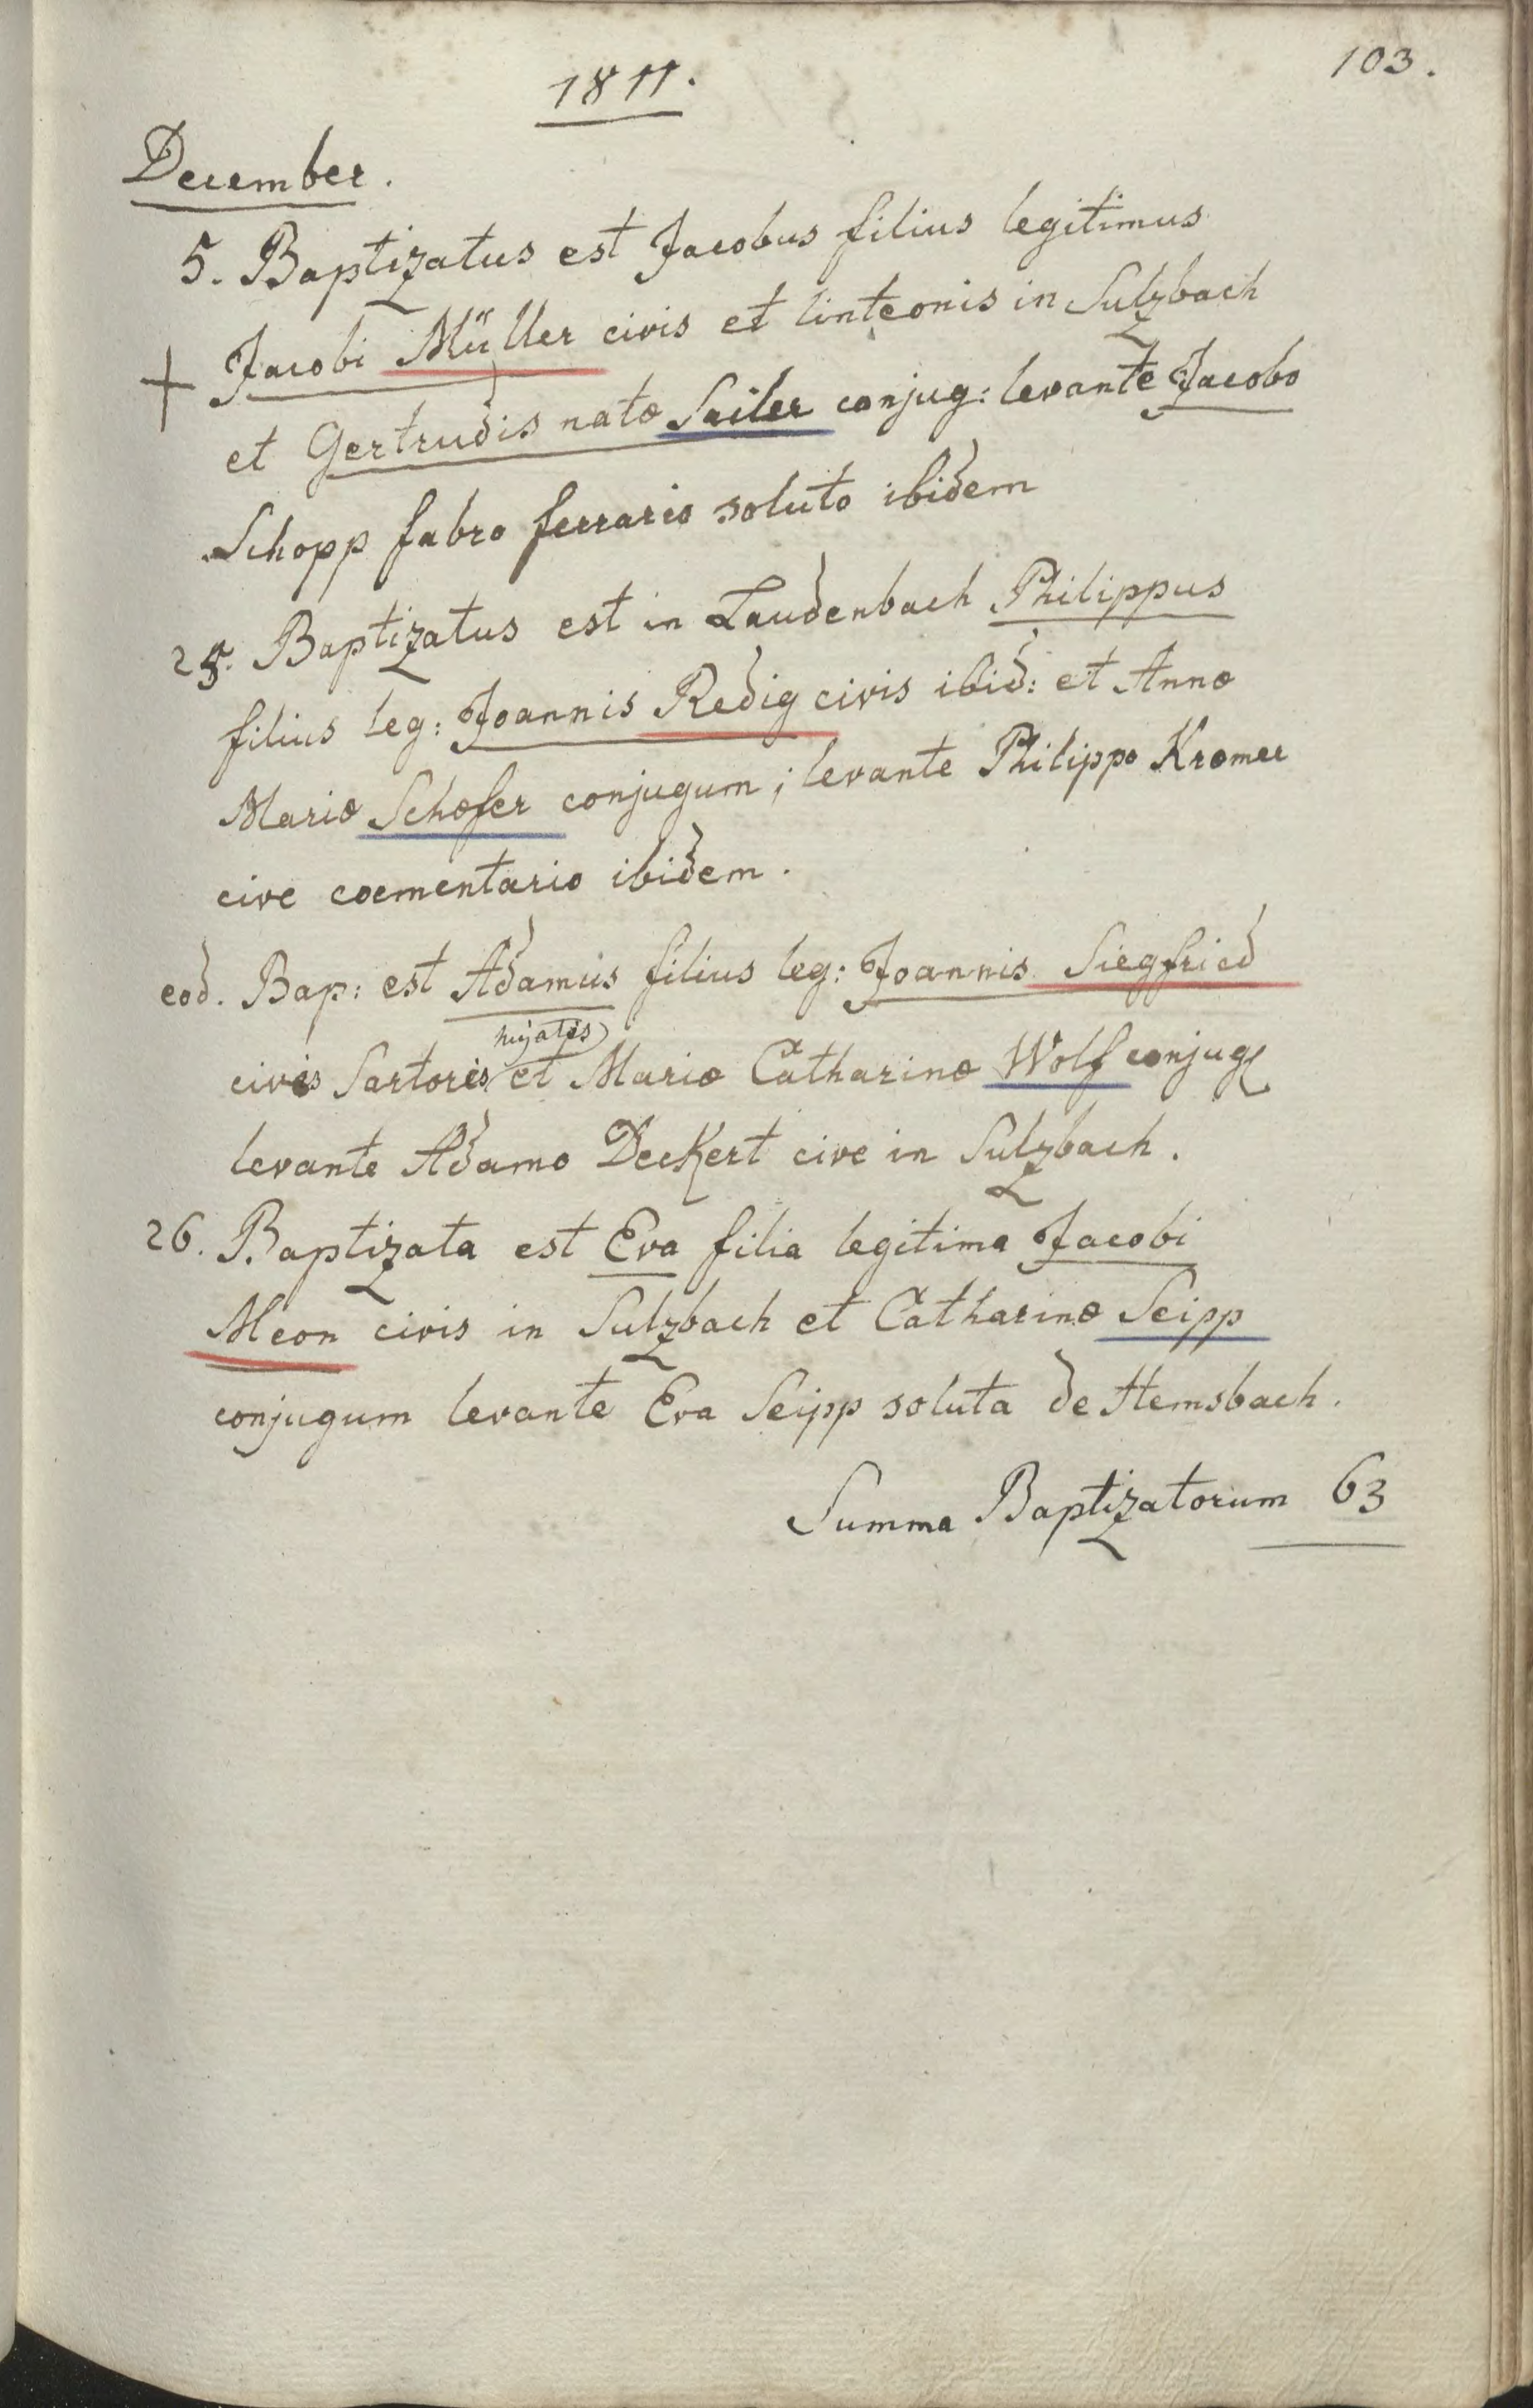 103.
1811.
December.
5. Baptizatus est Jacobus filius legitimus
+ Jacobi Müller civis et linteonis in Sulzbach
et Gertrudis natæ Sailer conjug: levante Jacobo
Schopp fabro ferrario soluto ibidem
25. Baptizatus est in Laudenbach Philippus
filius leg: Joannis Redig civis ibid: et Annæ
Mariæ Schæfer conjugum; levante Philippo Kræmer
cive coementario ibidem.
eod. Bap: est Adamus filius leg: Joannis Siegfried
hujatis
civis Sartoris et Mariæ Catharinæ Wolf conjug
levante Adamo Deckert cive in Sulzbach.
26. Baptizata est Eva filia legitima Jacobi
Meon civis in Sulzbach et Catharinæ Seipp
conjugum levante Eva Seipp soluta de Hemsbach.
Summa Baptizatorum 63